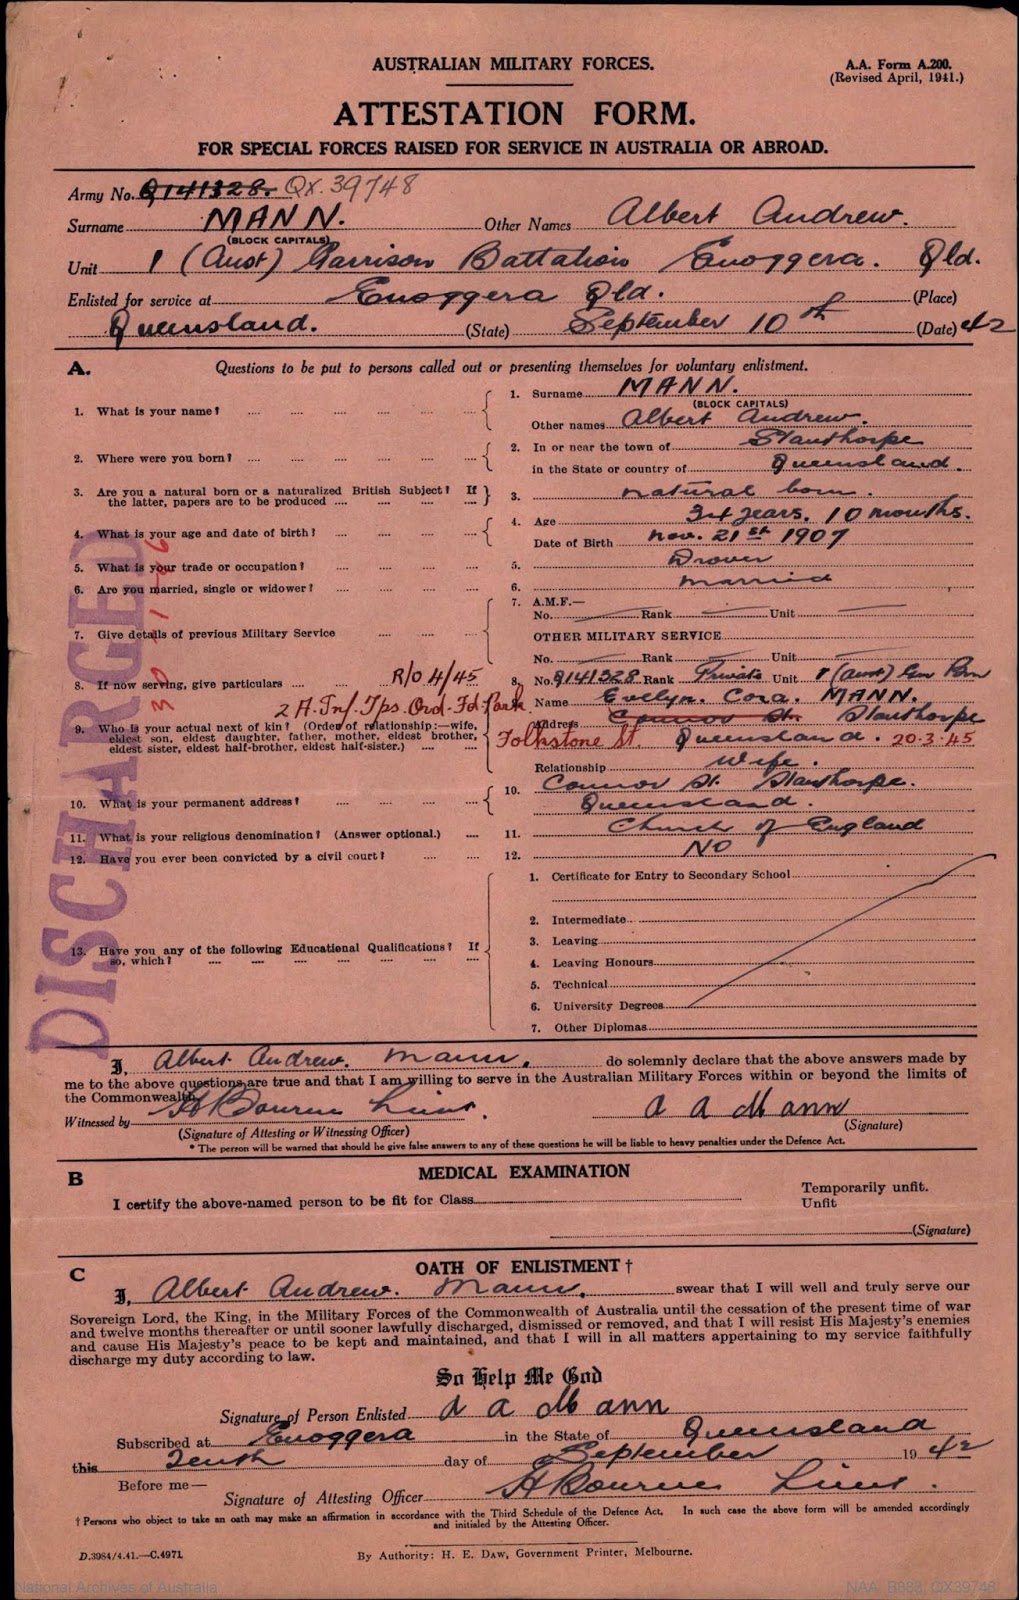 AUSTRALIAN MILITARY FORCES.
A.A. Form A.200.
(Revised April, 1941.)
ATTESTATION FORM.
FOR SPECIAL FORCES RAISED FOR SERVICE IN AUSTRALIA OR ABROAD.
Army No. Q141328. QX.39748
Surname MANN. Other Names Albert Andrew.
(BLOCK CAPITALS)
Unit 1 (Aust) Garrison Battalion Enoggera. Qld.
Enlisted for service at Enoggera Qld. (Place)
Queensland. (State) September 10th (Date) 42
A. Questions to be put to persons called out or presenting themselves for voluntary enlistment.
1. What is your name? .... 1. Surname MANN.
(BLOCK CAPITALS)
Other names Albert Andrew.
2. Where were you born? .... 2. In or near the town of Stanthorpe
in the State or country of Queensland.
3. Are you a natural born or a naturalized British Subject? If
the latter, papers are to be produced .... 3. natural born.
4. What is your age and date of birth? .... 4. Age 34 years. 10 months.
Date of Birth Nov. 21st 1907
5. What is your trade or occupation? .... 5. Drover
6. Are you married, single or widower? .... 6. Married
7. Give details of previous Military Service 7. A.M.F.—
No. Rank Unit
OTHER MILITARY SERVICE
No. Rank Unit
8. If now serving, give particulars .... R/O 4/45 8. No. Q141328 Rank Private Unit 1 (Aust) Gar Bn
2 A. Inf. Tps. Ord. Fd. Park.
9. Who is your actual next of kin? (Order of relationship:—wife,
eldest son, eldest daughter, father, mother, eldest brother,
eldest sister, eldest half-brother, eldest half-sister.) ....
Name Evelyn Cora. MANN.
Address Connor St. Stanthorpe
Folkstone St. Queensland. 20.3.45
Relationship Wife.
10. What is your permanent address? .... 10. Connor St. Stanthorpe.
Queensland.
11. What is your religious denomination? (Answer optional.) .... 11. Church of England
12. Have you ever been convicted by a civil court? .... 12. NO
13. Have you any of the following Educational Qualifications? If
so, which? ....
1. Certificate for Entry to Secondary School
2. Intermediate
3. Leaving
4. Leaving Honours
5. Technical
6. University Degrees
7. Other Diplomas
DISCHARGED
I, Albert Andrew. Mann, do solemnly declare that the above answers made by
me to the above questions are true and that I am willing to serve in the Australian Military Forces within or beyond the limits of
the Commonwealth.
Witnessed by A A Mann
(Signature of Attesting or Witnessing Officer) (Signature)
* The person will be warned that should he give false answers to any of these questions he will be liable to heavy penalties under the Defence Act.
B MEDICAL EXAMINATION
I certify the above-named person to be fit for Class Temporarily unfit.
Unfit
(Signature)
C OATH OF ENLISTMENT †
I, Albert Andrew. Mann, swear that I will well and truly serve our
Sovereign Lord, the King, in the Military Forces of the Commonwealth of Australia until the cessation of the present time of war
and twelve months thereafter or until sooner lawfully discharged, dismissed or removed, and that I will resist His Majesty's enemies
and cause His Majesty's peace to be kept and maintained, and that I will in all matters appertaining to my service faithfully
discharge my duty according to law.
So Help Me God
Signature of Person Enlisted A A Mann
Subscribed at Enoggera in the State of Queensland
this Tenth day of September 1942
Before me—
Signature of Attesting Officer
† Persons who object to take an oath may make an affirmation in accordance with the Third Schedule of the Defence Act. In such case the above form will be amended accordingly
and initialed by the Attesting Officer.
D.3984/4.41.—C.4971.
By Authority: H. E. DAW, Government Printer, Melbourne.
National Archives of Australia
NAA: B883, QX39748